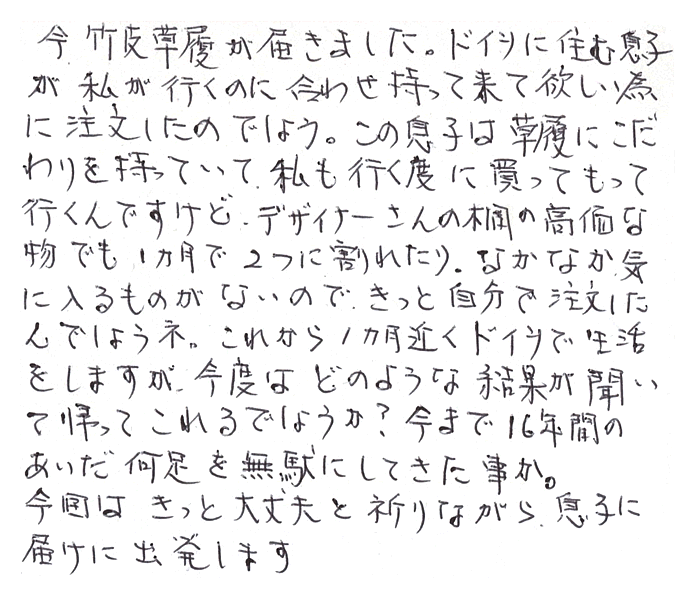 今、竹皮草履が届きました。ドイツに住む息子
が 私が 行くのに 合わせ 持って来て欲しい為
に 注文したのでしょう。この息子は草履にこだ
わりを持っていて、私も行く度に買ってもって
行くんですけど、デザイナーさんの桐の高価な
物でも 1カ月で 2つに割れたり、なかなか気
に入るものがないので、きっと自分で注文した
んでしょうネ。これから1カ月近くドイツで生活
をしますが、今度は どのような結果が聞い
て帰ってこれるでしょうか?今まで16年間の
あいだ何足を無駄にしてきた事か。
今回は きっと大丈夫と祈りながら、息子に
届けに出発します